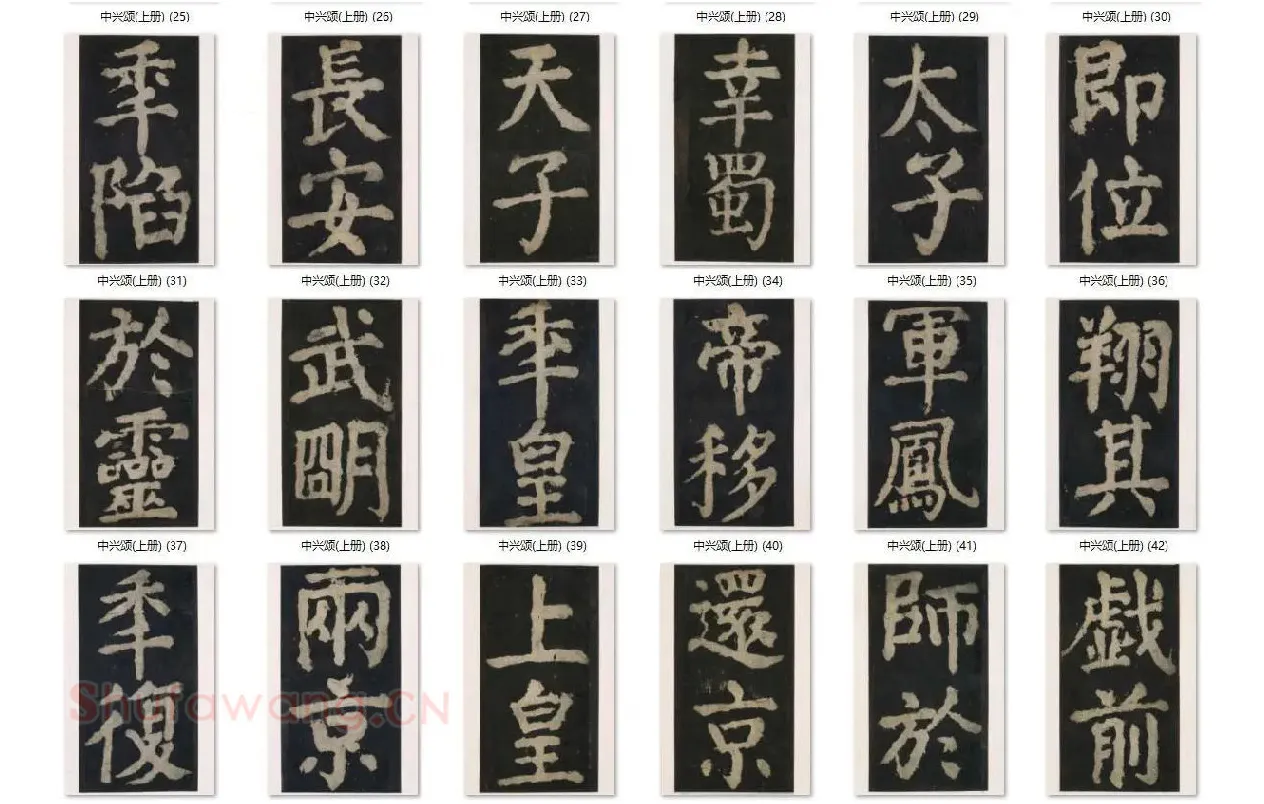 中兴颂(上册) (25)
秊陷
中兴颂(上册) (26)
長安
中兴颂(上册) (27)
天子
中兴颂(上册) (28)
幸蜀
中兴颂(上册) (29)
太子
中兴颂(上册) (30)
即位
中兴颂(上册) (31)
於靈
中兴颂(上册) (32)
武朙
中兴颂(上册) (33)
秊皇
中兴颂(上册) (34)
帝移
中兴颂(上册) (35)
軍鳳
中兴颂(上册) (36)
翔其
中兴颂(上册) (37)
秊復
中兴颂(上册) (38)
兩京
中兴颂(上册) (39)
上皇
中兴颂(上册) (40)
還京
中兴颂(上册) (41)
師於
中兴颂(上册) (42)
戱前
Shufawang.CN